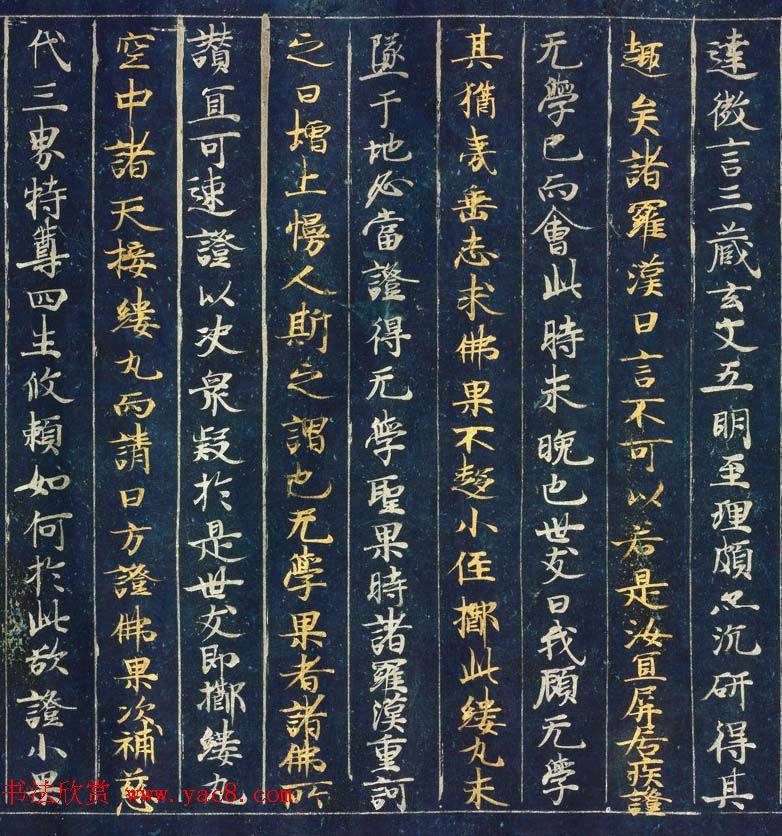 達微言三藏玄文五明至理頗亦沉研得其
趣矣諸羅漢曰言不可以若是汝宜屏居疾證
无學已而會此時未晚也世友曰我顧无學
其猶垂志求佛果不趍小徑擲此縷丸未
墜于地必當證得无學聖果時諸羅漢重訶
之曰增上慢人斯之謂也无學果者諸佛所
讚宜可速證以决衆疑於是世友即擲縷丸
空中諸天接縷丸而請曰方證佛果次補慈
代三界特尊四生攸賴如何於此欲證小果
书法欣赏 www.yac8.com